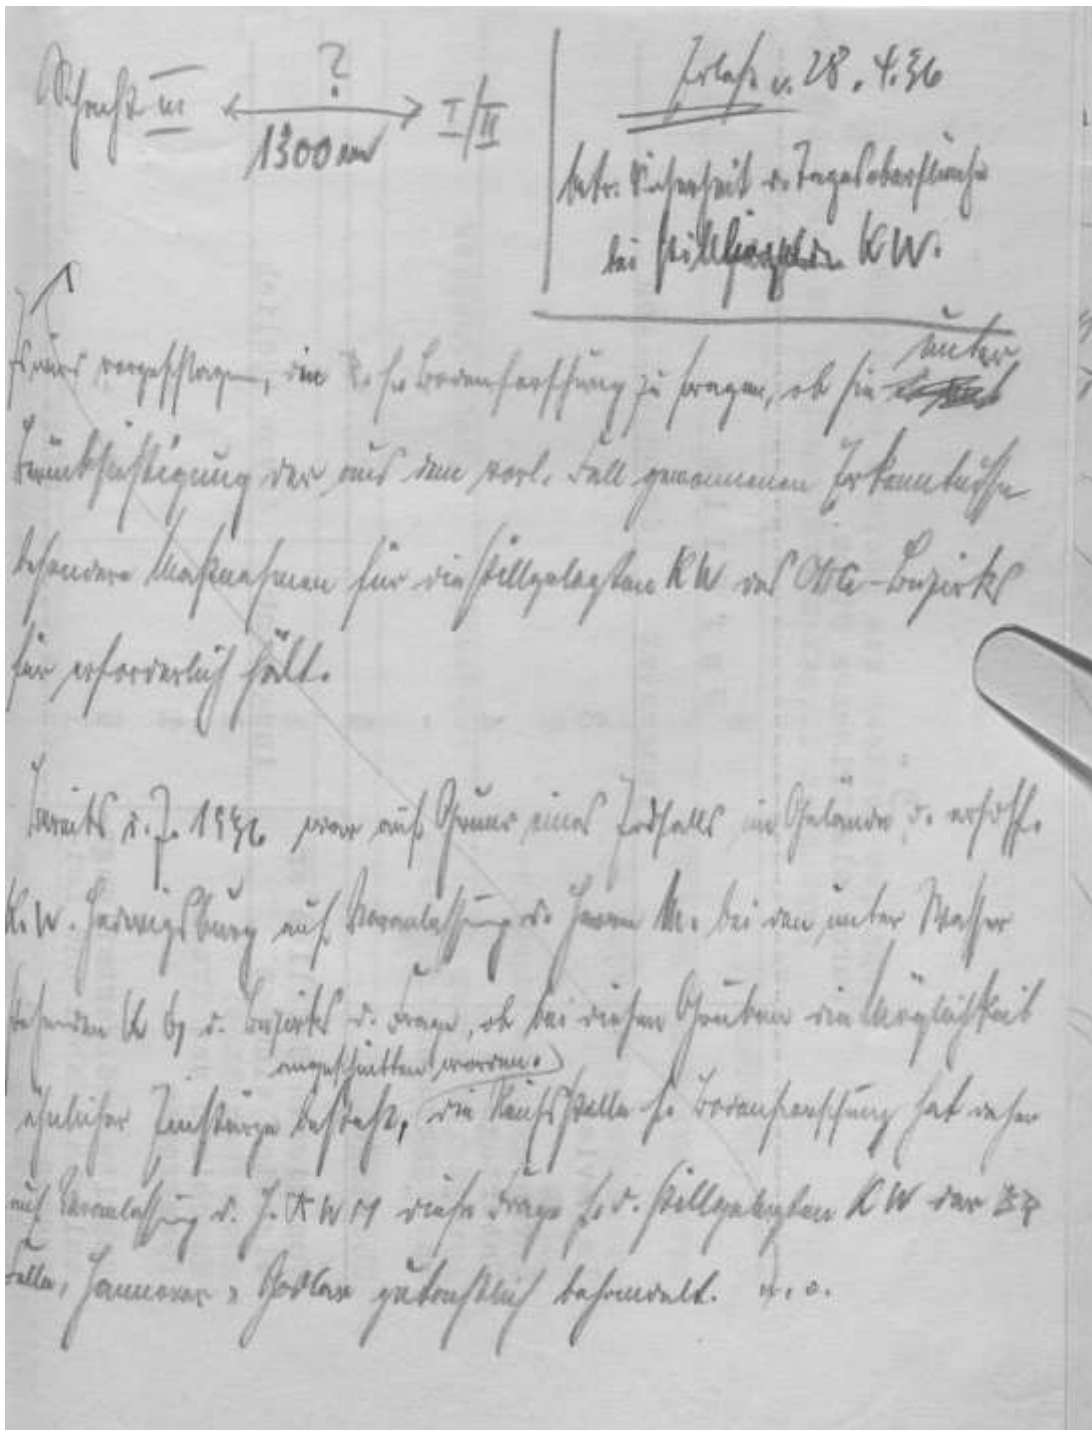 Schacht III ← ? 1300 m → I/II
Erlaß v. 28.4.36
betr. Sicherheit d. Tagesoberfläche
bei stillgelegten KW.
Es wird vorgeschlagen, die R. f. Bodenforschung zu fragen, ob sie unter
Berücksichtigung der aus dem vorl. Fall gewonnenen Erkenntnisse
besondere Maßnahmen für die stillgelegten KW des OBA-Bezirks
für erforderlich hält.
Bereits i. J. 1936 war auf Grund eines Erdfalls im Gelände d. ersoff.
K.W. Hedwigsburg auf Veranlassung d. Herrn M. bei den unter Wasser
stehenden d. Bezirks d. Frage, ob bei diesen Gruben die Möglichkeit
angeschnitten worden.
ähnlicher Einstürze besteht, die Reichsstelle f. Bodenforschung hat daher
auf Veranlassung d. H. RWM diese Frage f. d. stillgelegten KW der BR
Celle, Hannover u. Goslar gutachtlich behandelt.